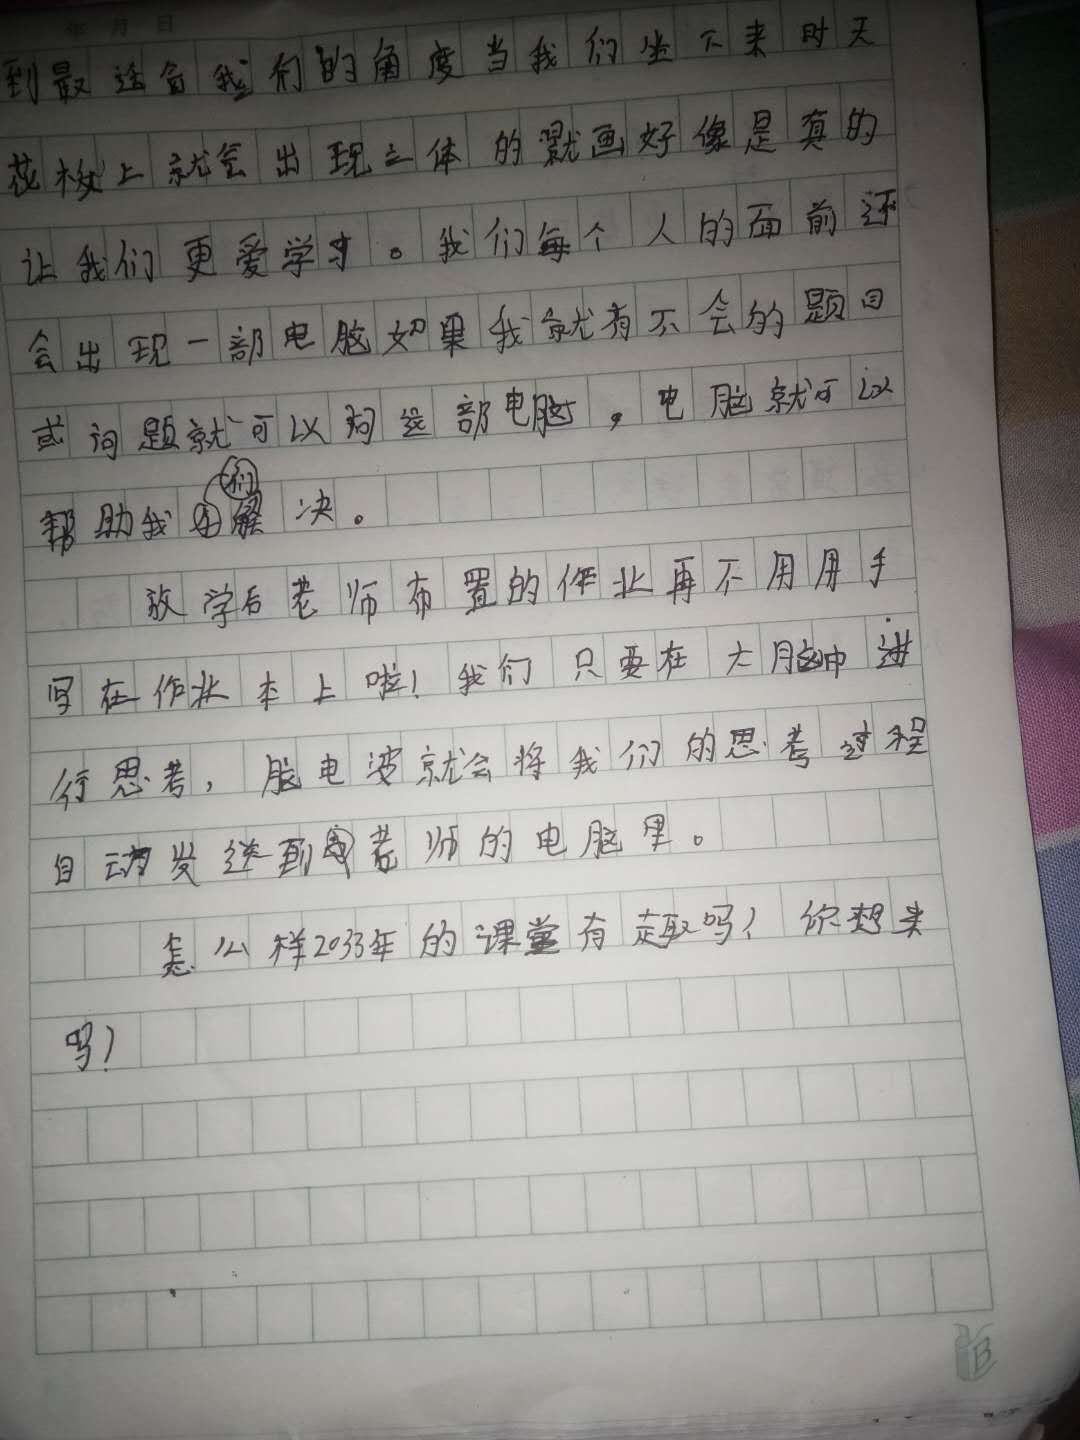 年 月 日
到最适合我们的角度当我们坐下来时天
花板上就会出现立体的画好像是真的
让我们更爱学习。我们每个人的面前还
会出现一部电脑如果我就有不会的题目
或问题就可以问这部电脑，电脑就可以
帮助我们解决。
放学后老师布置的作业再不用用手
写在作业本上啦！我们只要在大脑中进
行思考，脑电波就会将我们的思考过程
自动发送到老师的电脑里。
怎么样2033年的课堂有趣吗！你想来
吗！